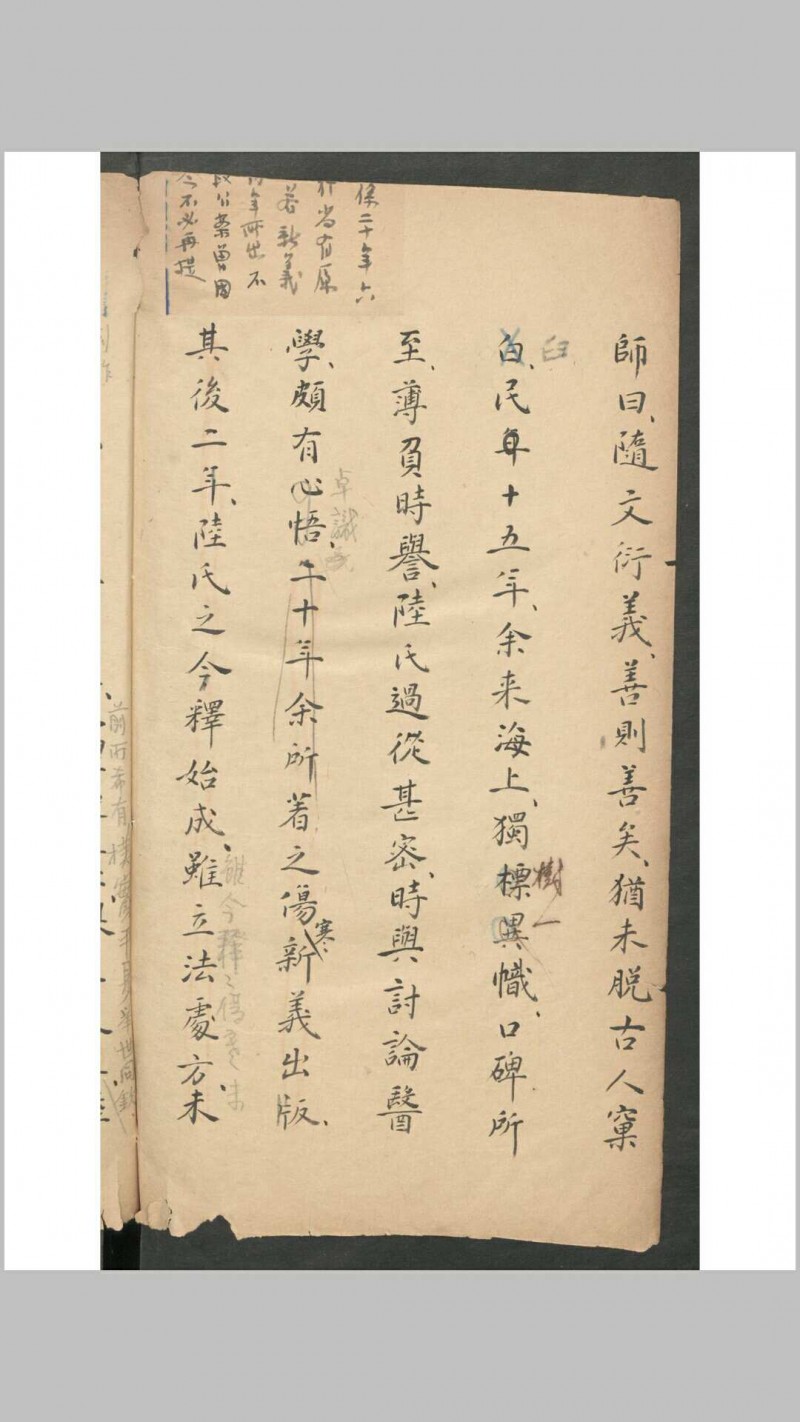 師曰、隨文衍義、善則善矣、猶未脫古人窠
臼
白、民年十五年、余来海上、獨標異幟、口碑所
樹一
至、薄負時譽、陸氏過從甚密、時與討論醫
學、頗有心悟、二十年余所着之傷新義出版、
卓識
寒
其後二年、陸氏之今釋始成、雖立法處方、未
雖今釋之
係二十年六
行尚有原
若新義
年所出不
段公案曾國
今不必再提
前所希有